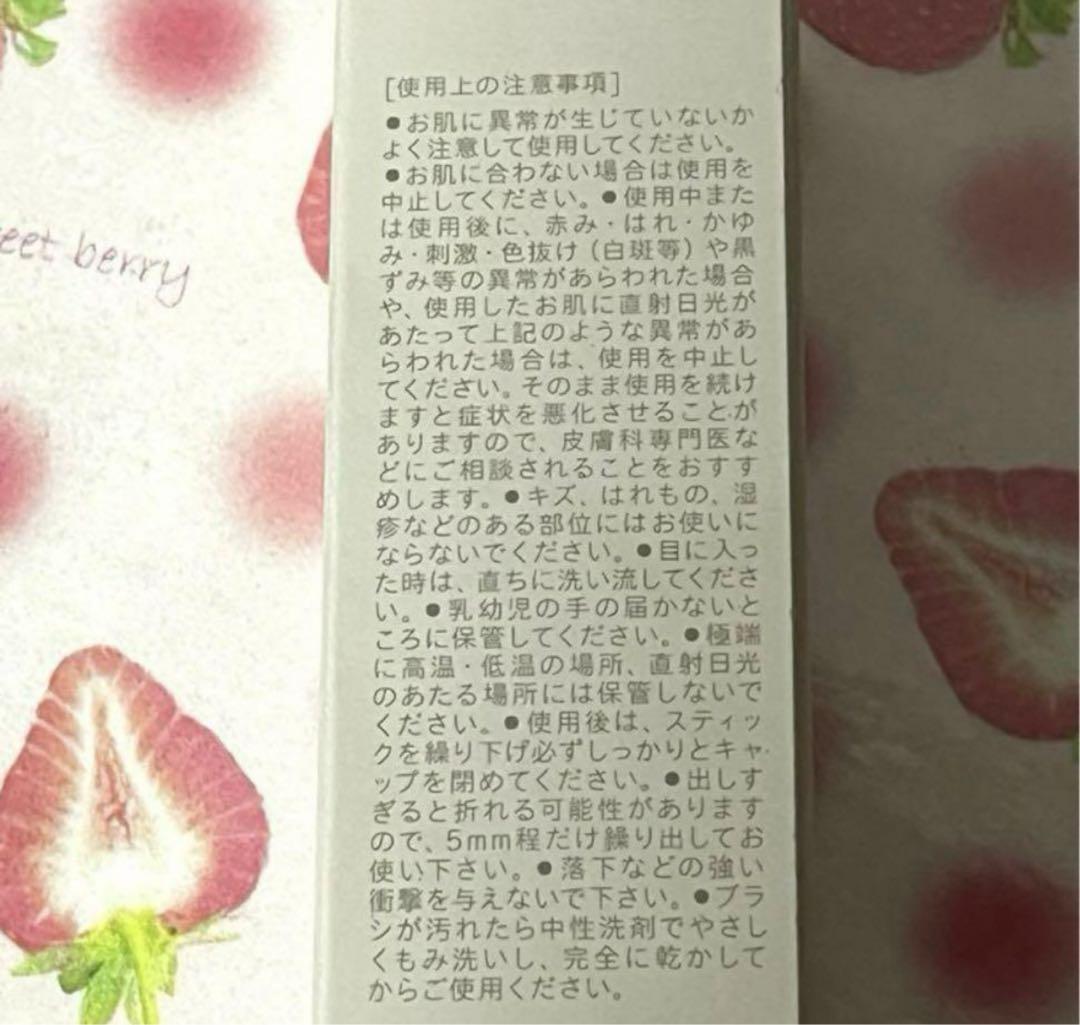 eet berry
[使用上の注意事項]
●お肌に異常が生じていないか
よく注意して使用してください。
●お肌に合わない場合は使用を
中止してください。●使用中また
は使用後に、赤み・はれ・かゆ
み・刺激・色抜け（白斑等）や黒
ずみ等の異常があらわれた場合
や、使用したお肌に直射日光が
あたって上記のような異常があ
らわれた場合は、使用を中止し
てください。そのまま使用を続け
ますと症状を悪化させることが
ありますので、皮膚科専門医な
どにご相談されることをおすす
めします。●キズ、はれもの、湿
疹などのある部位にはお使いに
ならないでください。●目に入っ
た時は、直ちに洗い流してくださ
い。●乳幼児の手の届かないと
ころに保管してください。●極端
に高温・低温の場所、直射日光
のあたる場所には保管しないで
ください。●使用後は、スティッ
クを繰り下げ必ずしっかりとキャ
ップを閉めてください。●出しす
ぎると折れる可能性があります
ので、5mm程だけ繰り出してお
使い下さい。●落下などの強い
衝撃を与えないで下さい。●ブラ
シが汚れたら中性洗剤でやさし
くもみ洗いし、完全に乾かして
からご使用ください。